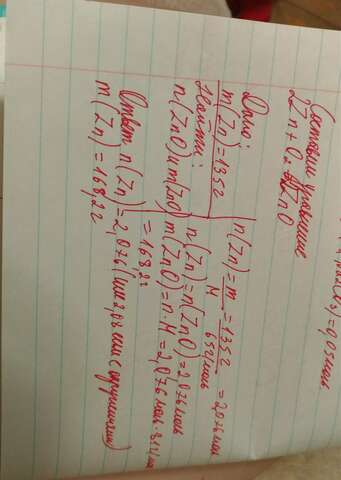 = 0,05 моль
Составим уравнение
2Zn + O2 = 2ZnO
Дано:
m(Zn) = 135г
Найти:
n(ZnO) и m(ZnO)
n(Zn) = m/M = 135г/65г/моль = 2,076 моль
n(Zn) = n(ZnO) = 2,076 моль
m(ZnO) = n·M = 2,076 моль · 81г/моль
= 168,2г
Ответ: n(Zn) = 2,076 (или 2,08 если с округлением)
m(Zn) = 168,2г